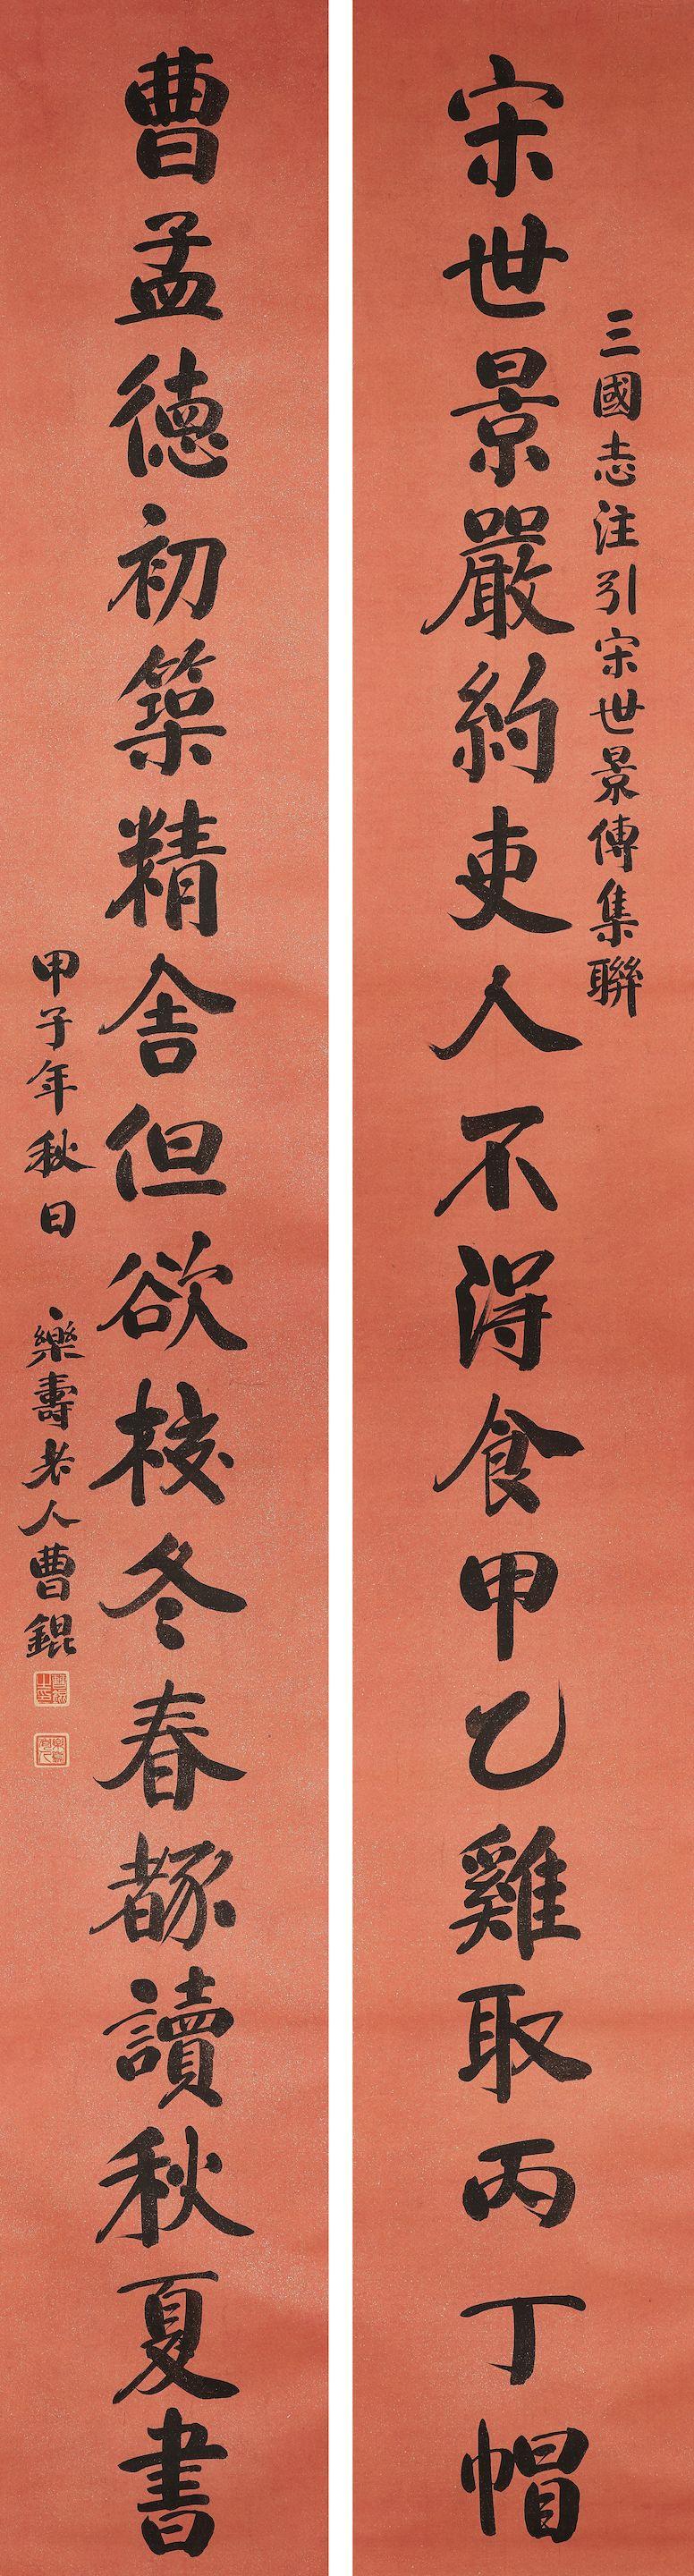 三國志注引宋世景傳集聯
宋世景嚴約吏人不得食甲乙雞取丙丁帽
曹孟德初築精舍但欲校冬春讀秋夏書
甲子年秋日 樂壽老人曹錕